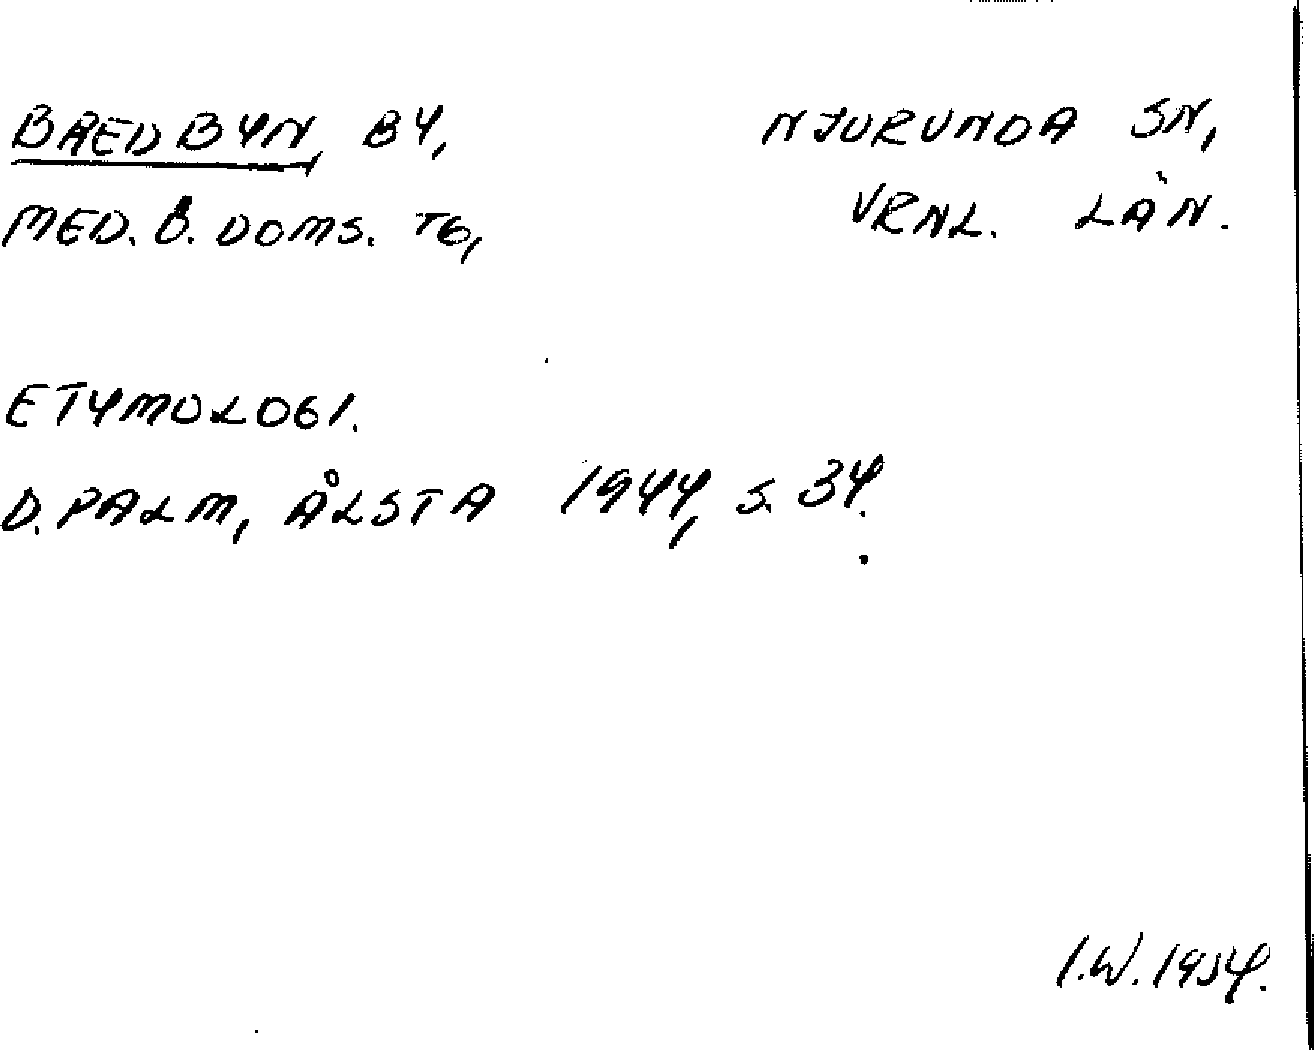 BREDBYN, BY, NJURUNDA SN,
MED. Ö. DOMS. TG, VRNL. LÄN.
ETYMOLOGI.
D. PALM, ÅLSTA 1944, S. 34.
I.W. 1954.